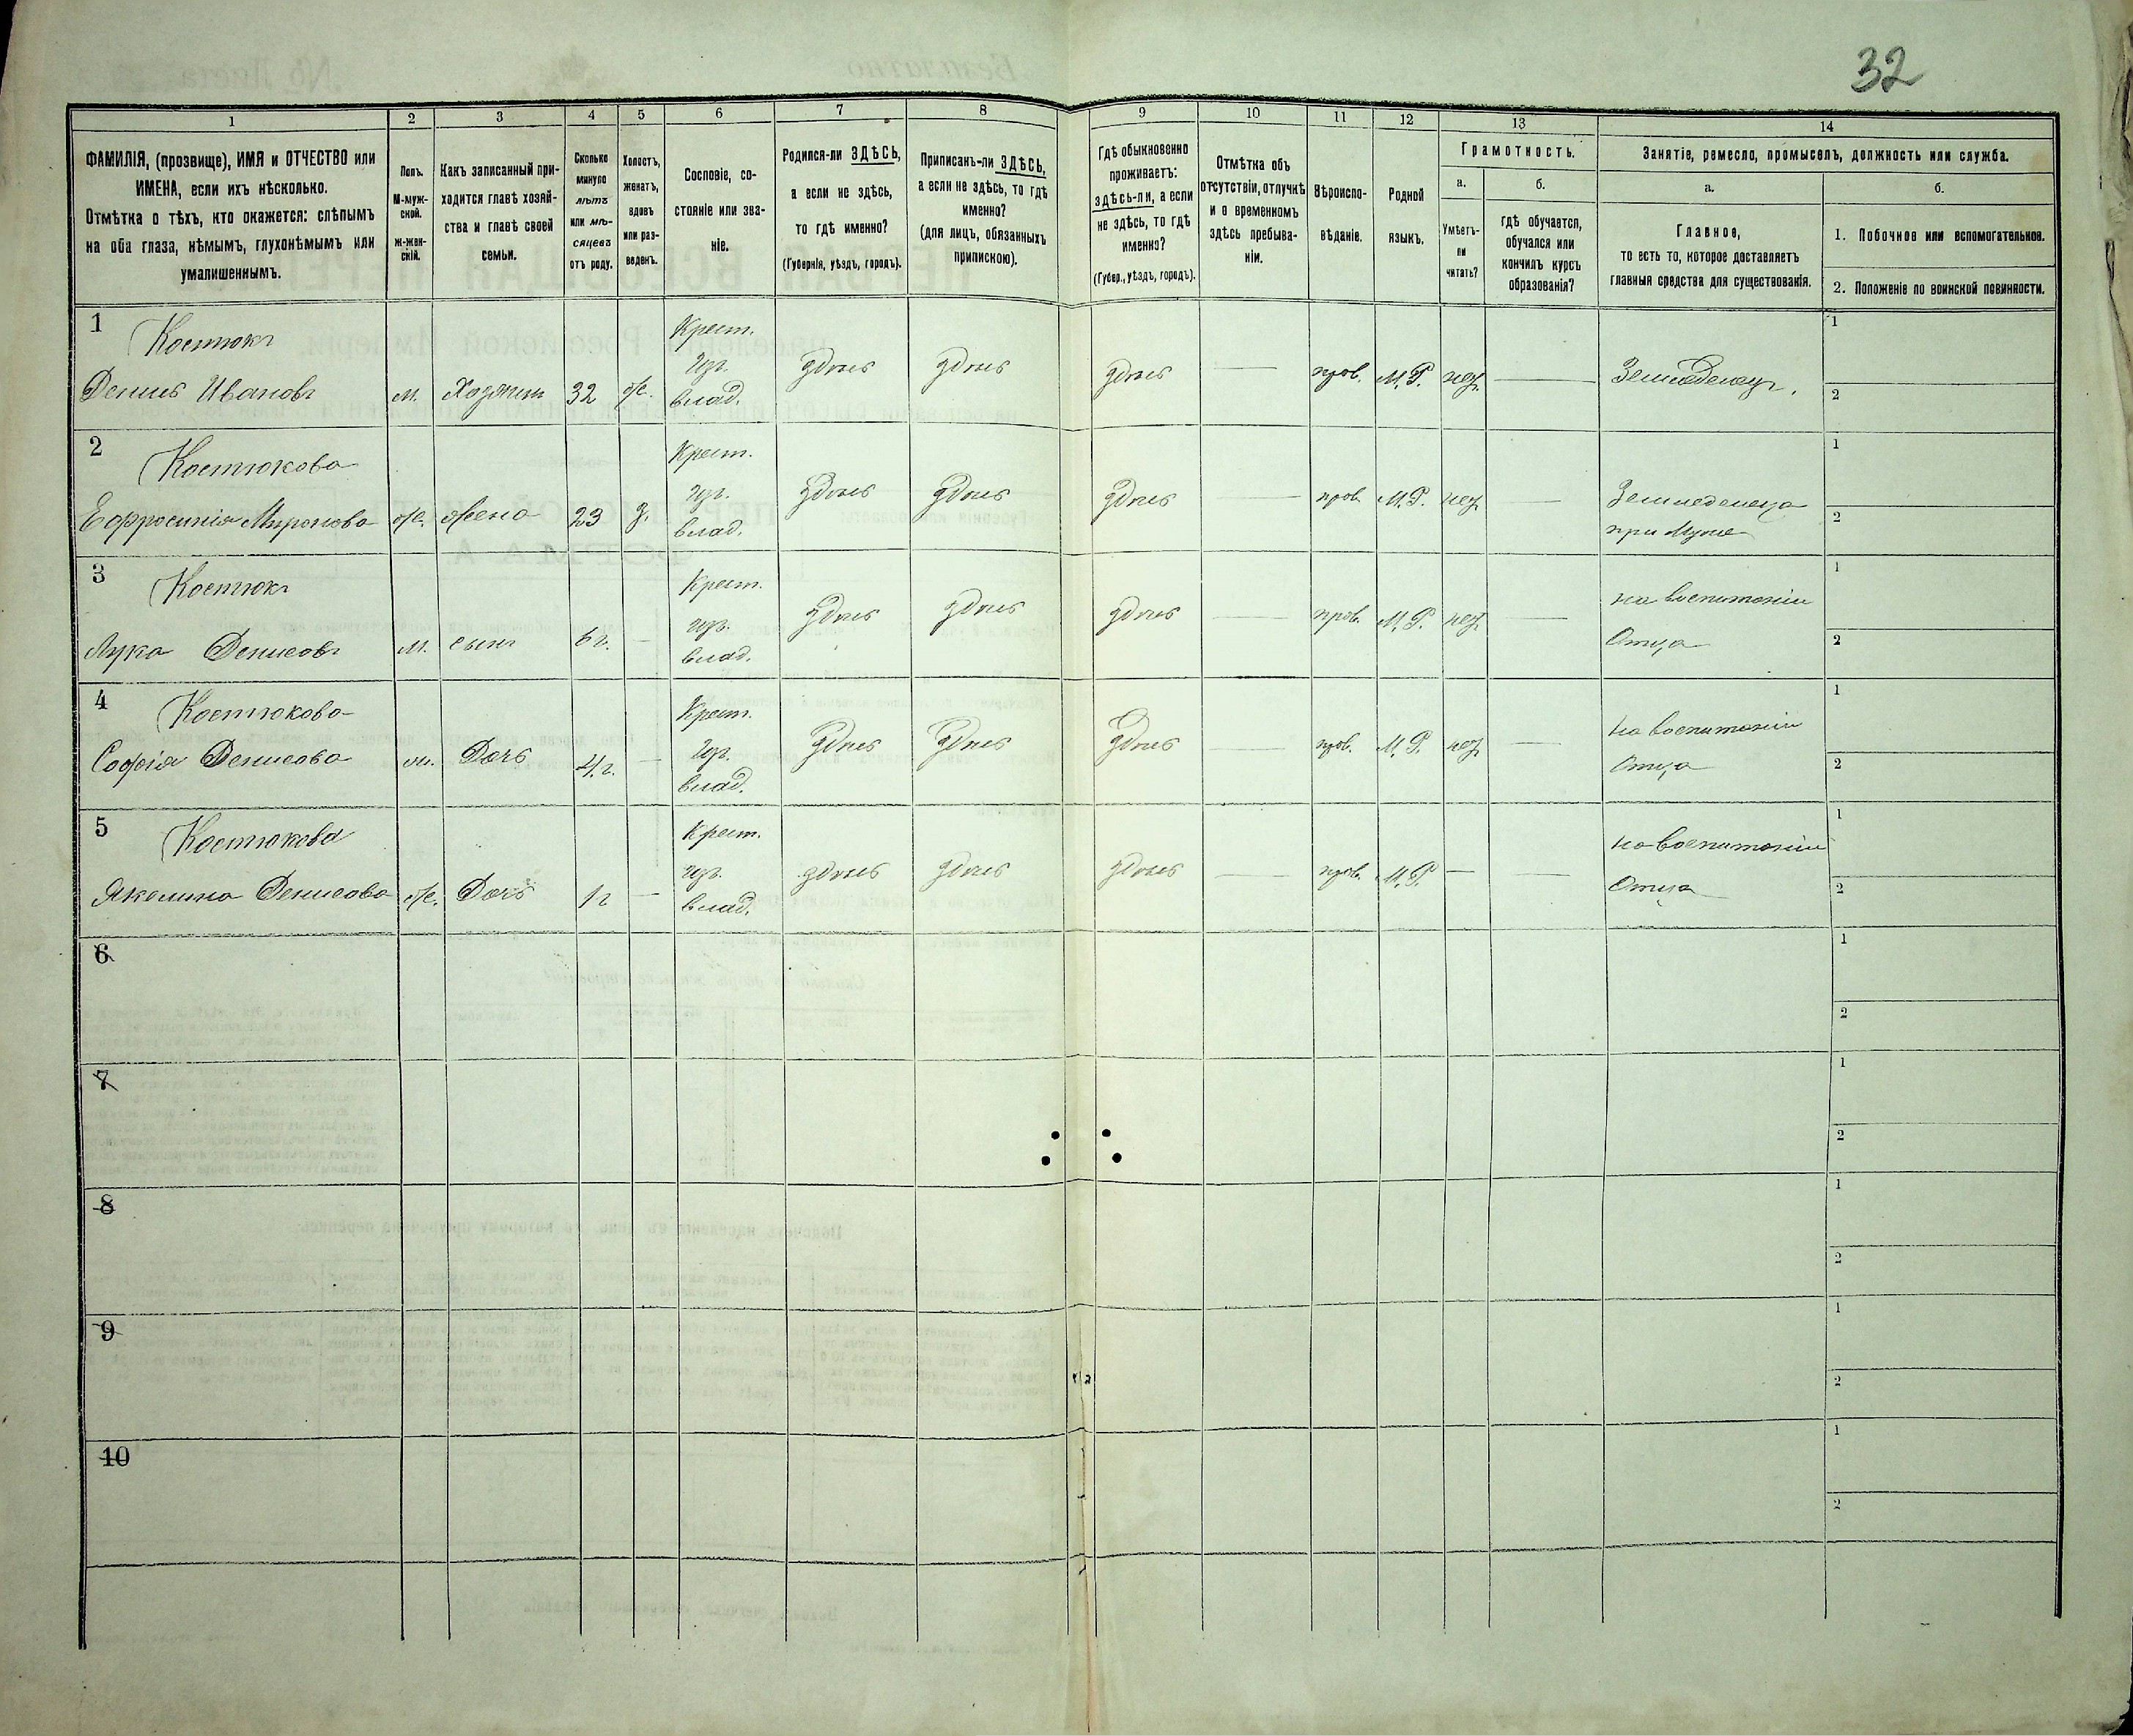 32
1 2 3 4 5 6 7 8 9 10 11 12 13 14
ФАМИЛІЯ, (прозвище), ИМЯ и ОТЧЕСТВО или
ИМЕНА, если ихъ нѣсколько.
Отмѣтка о тѣхъ, кто окажется: слѣпымъ
на оба глаза, нѣмымъ, глухонѣмымъ или
умалишеннымъ.
Полъ.
М-муж-
ской.
Ж-жен-
скій.
Какъ записанный при-
ходится главѣ хозяй-
ства и главѣ своей
семьи.
Сколько
минуло
лѣтъ
или мѣ-
сяцевъ
отъ роду.
Холостъ,
женатъ,
вдовъ
или раз-
веденъ.
Сословіе, со-
стояніе или зва-
ніе.
Родился-ли ЗДѢСЬ,
а если не здѣсь,
то гдѣ именно?
(Губернія, уѣздъ, городъ).
Приписанъ-ли ЗДѢСЬ,
а если не здѣсь, то гдѣ
именно?
(для лицъ, обязанныхъ
припискою).
Гдѣ обыкновенно
проживаетъ:
здѣсь-ли, а если
не здѣсь, то гдѣ
именно?
(Губер., уѣздъ, городъ).
Отмѣтка объ
отсутствіи, отлучкѣ
и о временномъ
здѣсь пребыва-
ніи.
Вѣроиспо-
вѣданіе.
Родной
языкъ.
Грамотность.
а.
Умѣетъ-
ли
читать?
б.
гдѣ обучается,
обучался или
кончилъ курсъ
образованія?
Занятіе, ремесло, промыселъ, должность или служба.
а.
Главное,
то есть то, которое доставляетъ
главныя средства для существованія.
б.
1. Побочное или вспомогательное.
2. Положеніе по воинской повинности.
1
Костюкъ
Денисъ Ивановъ
м. Хозяинъ 32 ж.
Крест.
изъ
влад.
здѣсь здѣсь здѣсь — прав. М.Р. нѣтъ —
Земледѣлецъ.
1
2
2
Костюкова
Ефросинія Миронова
ж. жена 23 з.
Крест.
изъ
влад.
здѣсь здѣсь здѣсь — прав. М.Р. нѣтъ —
Земледѣлица
при Мужѣ
1
2
3
Костюкъ
Лука Денисовъ
м. сынъ 6 г. —
Крест.
изъ
влад.
здѣсь здѣсь здѣсь — прав. М.Р. нѣтъ —
на воспитаніи
Отца
1
2
4
Костюкова
Софія Денисова
Дочь 4 г. —
Крест.
изъ
влад.
здѣсь здѣсь здѣсь — прав. М.Р. нѣтъ —
на воспитаніи
Отца
1
2
5
Костюкова
Акелина Денисова
ж. Дочь 1 г —
Крест.
изъ
влад.
здѣсь здѣсь здѣсь — прав. М.Р. — —
на воспитаніи
Отца
1
2
6
1
2
7
1
2
8
1
2
9
1
2
10
1
2